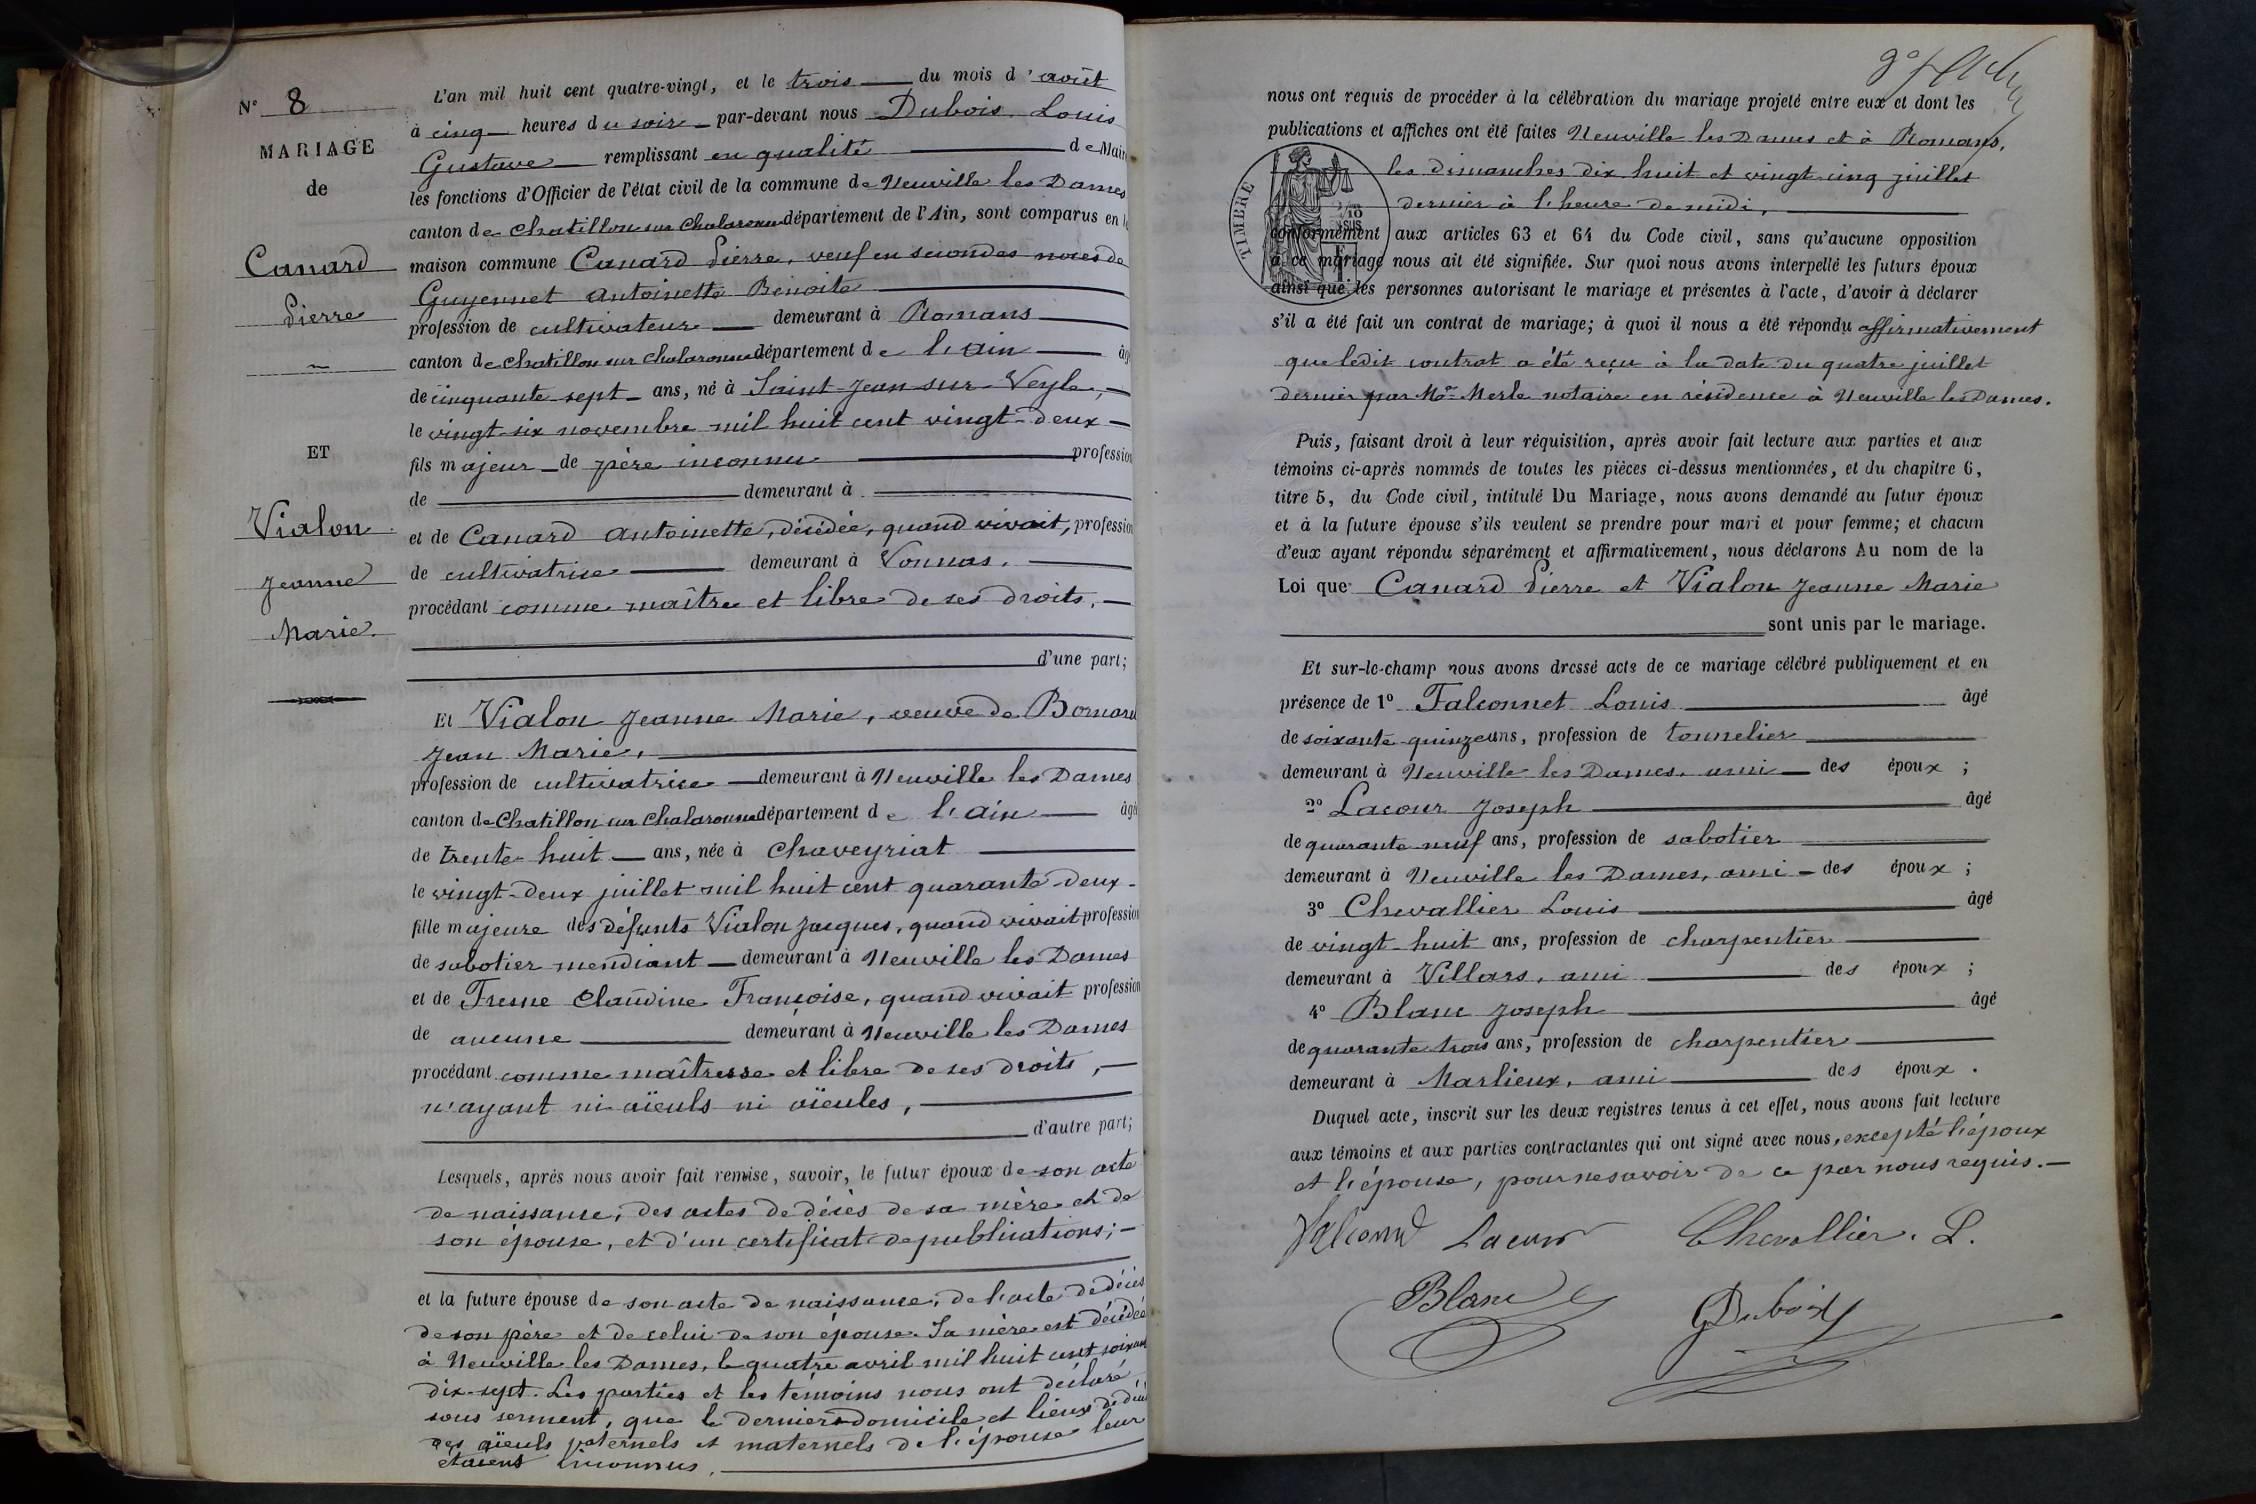 N° 8
MARIAGE
de
Canard
Pierre
ET
Vialon
Jeanne
Marie.
L'an mil huit cent quatre-vingt, et le trois du mois d'août
à cinq heures du soir par-devant nous Dubois Louis
Gustave remplissant en qualité de Maire
les fonctions d'Officier de l'état civil de la commune de Neuville les Dames
canton de Chatillon sur Chalaronne département de l'Ain, sont comparus en la
maison commune Canard Pierre, veuf en secondes noces de
Guyennet Antoinette Benoite
profession de cultivateur demeurant à Romans
canton de Chatillon sur Chalaronne département de l'ain âgé
de cinquante sept ans, né à Saint-Jean-sur-Veyle,
le vingt-six novembre mil huit cent vingt-deux
fils majeur de père inconnu profession
de demeurant à
et de Canard Antoinette, décédée, quand vivait, profession
de cultivatrice demeurant à Vonnas.
procédant comme maître et libre de ses droits,
d'une part;
Et Vialon Jeanne Marie, veuve de Bornard
Jean Marie,
profession de cultivatrice demeurant à Neuville les Dames
canton de Chatillon sur Chalaronne département de l'ain âgée
de trente-huit ans, née à Chaveyriat
le vingt-deux juillet mil huit cent quarante-deux
fille majeure des défunts Vialon Jacques, quand vivait profession
de sabotier mendiant demeurant à Neuville les Dames
et de Fresne Claudine Françoise, quand vivait profession
de aucune demeurant à Neuville les Dames
procédant comme maîtresse et libre de ses droits,
n'ayant ni aïeuls ni aïeules,
d'autre part;
Lesquels, après nous avoir fait remise, savoir, le futur époux de son acte
de naissance, des actes de décès de sa mère et de
son épouse, et d'un certificat de publications;
et la future épouse de son acte de naissance, de l'acte de décès
de son père et de celui de son épouse. Sa mère est décédée
à Neuville les Dames, le quatre avril mil huit cent soixante
dix-sept. Les parties et les témoins nous ont déclaré
sous serment, que le derniers domicile et lieux de décès
des aïeuls paternels et maternels de l'épouse leur
étaient inconnus.
nous ont requis de procéder à la célébration du mariage projeté entre eux et dont les
publications et affiches ont été faites Neuville les Dames et à Romans,
les dimanches dix-huit et vingt-cinq juillet
dernier à l'heure de midi,
TIMBRE
conformément aux articles 63 et 64 du Code civil, sans qu'aucune opposition
à ce mariage nous ait été signifiée. Sur quoi nous avons interpellé les futurs époux
ainsi que les personnes autorisant le mariage et présentes à l'acte, d'avoir à déclarer
s'il a été fait un contrat de mariage; à quoi il nous a été répondu affirmativement
que ledit contrat a été reçu à la date du quatre juillet
dernier par Me Merle notaire en résidence à Neuville les Dames.
Puis, faisant droit à leur réquisition, après avoir fait lecture aux parties et aux
témoins ci-après nommés de toutes les pièces ci-dessus mentionnées, et du chapitre 6,
titre 5, du Code civil, intitulé Du Mariage, nous avons demandé au futur époux
et à la future épouse s'ils veulent se prendre pour mari et pour femme; et chacun
d'eux ayant répondu séparément et affirmativement, nous déclarons Au nom de la
Loi que Canard Pierre et Vialon Jeanne Marie
sont unis par le mariage.
Et sur-le-champ nous avons dressé acte de ce mariage célébré publiquement et en
présence de 1° Falconnet Louis âgé
de soixante-quinze ans, profession de tonnelier
demeurant à Neuville les Dames, ami des époux ;
2° Lacour Joseph âgé
de quarante-neuf ans, profession de sabotier
demeurant à Neuville les Dames, ami des époux ;
3° Chevallier Louis âgé
de vingt-huit ans, profession de charpentier
demeurant à Villars, ami des époux ;
4° Blanc Joseph âgé
de quarante trois ans, profession de charpentier
demeurant à Marlieux, ami des époux.
Duquel acte, inscrit sur les deux registres tenus à cet effet, nous avons fait lecture
aux témoins et aux parties contractantes qui ont signé avec nous, excepté l'époux
et l'épouse, pour ne savoir de ce par nous requis.
Lacour Chevallier. L.
Blanc GDubois